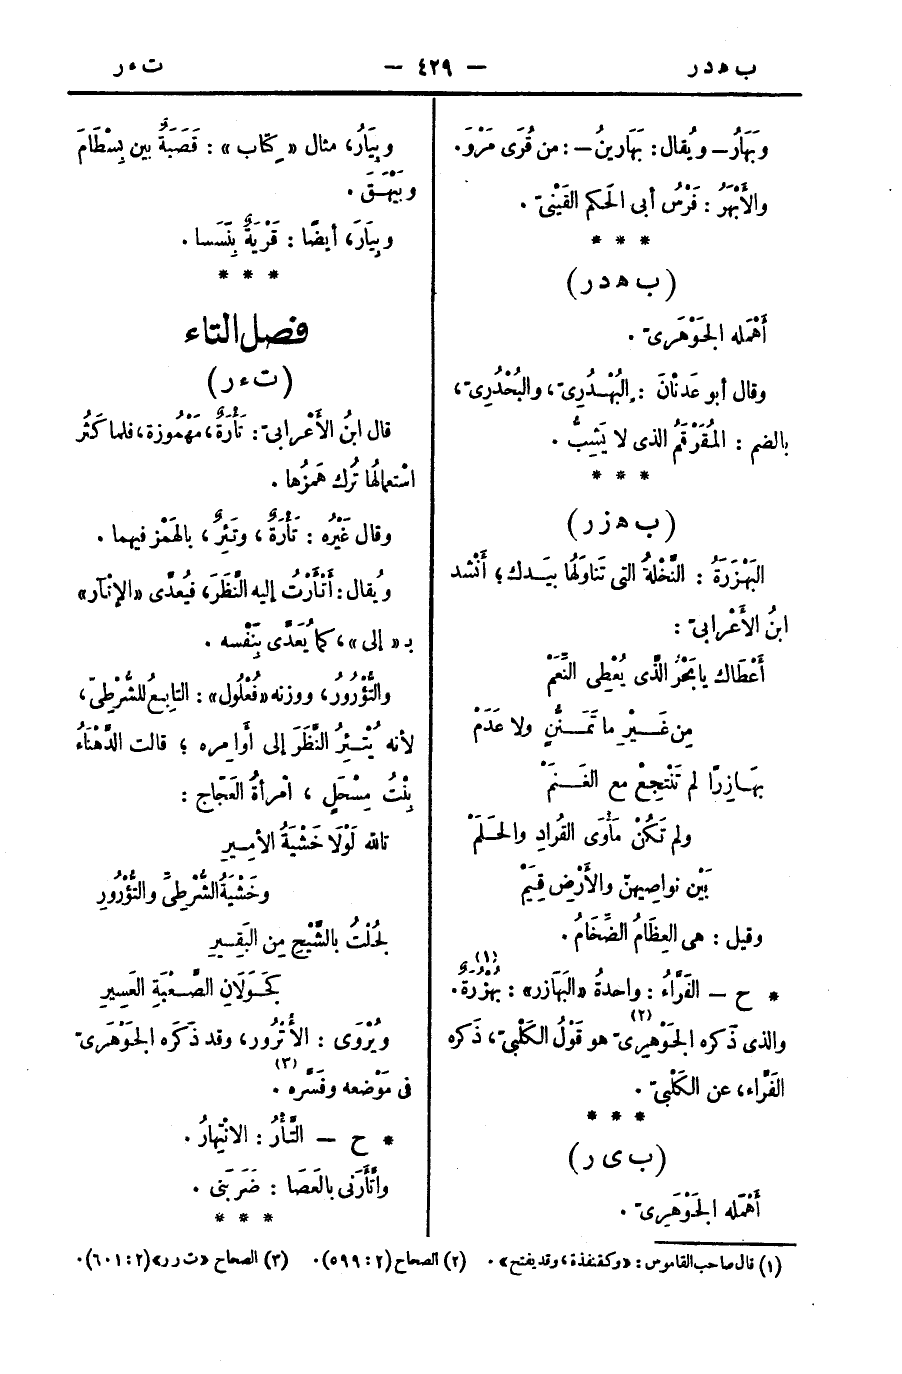 ب هدر — ٤٢٩ — ت ء ر
وبَهَارُ – ويُقال: بَهَارِينُ – : من قُرَى مَرْوَ.
والأَبْهَرُ : فَرَسُ أبى الحَكم القَيْنىّ .
* * *
(ب هدر)
أَهْمَله الجَوْهَرىّ .
وقال أبو عَدْنَانَ : البُهْدُرِىّ، والبُحْدُرِىّ،
بالضم : المُقَرْقَمُ الذى لا يَشِبُّ .
* * *
(ب هزر)
البَهْزَرَةُ : النَّخْلةُ التى تَناوَلُها بيَدك؛ أَنْشد
ابنُ الأَعْرابىّ :
أَعْطاك يا بَحْرُ الَّذى يُعْطِى النِّعَمْ
مِن غَيْرِ ما تَمَنُّنٍ ولا عَدَمْ
بَهَازِرًا لم تَنْتَجِعْ مع الغَنَمْ
ولم تَكُنْ مَأْوَى القُرادِ والحَلَمْ
بَيْن نواصِيهنّ والأَرْضِ قِيَمْ
وقيل : هى العِظَامُ الضِّخَامُ.
* ح – الفَرَّاءُ : واحدةُ «البَهَازر» : بُهْزُرَةٌ(١).
والذى ذَكره الجَوْهَرِىّ(٢) هو قَوْلُ الكَلْبىّ، ذَكره
الفَرَّاء، عن الكَلْبىّ .
* * *
(ب ى ر)
أَهْمَله الجَوْهَرِىّ .
وبِيَارُ، مثال «كِتاب» : قَصَبَةٌ بين بِسْطَامَ
وبَيْهَقَ .
وبِيَارَ، أيضًا : قَرْيَةٌ بِنَسَا .
* * *
فصل التاء
(ت ء ر)
قال ابنُ الأَعْرابىّ: تَأْرَةٌ، مَهْمُوزة، فلما كَثُر
اسْتعمالُها تُرك هَمزُها .
وقال غَيْرُه : تَأْرَةٌ ، وتَئِرٌ ، بالهَمْز فيهما .
ويُقال: أَتْأَرْتُ إليه النَّظَرَ، فيُعدَّى «الإتْآر»
بـ «إلى»، كما يُعَدَّى بِنَفْسه .
والتُّؤْرُور، ووزنه «فُعْلُول» : التابِعُ للشُّرْطِىّ،
لأنه يُتْئِرُ النَّظَرَ إلى أَوامِره ؛ قالت الدَّهْنَاءُ
بِنْتُ مِسْحَلٍ ، امْرأةُ العَجّاج :
تاللّٰه لَوْلَا خَشْيَةُ الأمِيرِ
وخَشْيَةُ الشُّرْطِىِّ والتُّؤْرُورِ
لَجُلْتُ بالشَّيْخ مِن البَقِيرِ
كَجَوَلَانِ الصَّعْبَةِ العَسِيرِ
ويُرْوَى : الأُتْرُور، وقد ذَكَره الجَوْهَرىّ
فى مَوْضعه وفَسَّره(٣) .
* ح – التَّأْرُ : الانْتِهارُ .
واتَّأَرَنى بالعَصَا : ضَرَبَنى .
* * *
(١) قال صاحب القاموس: «وكقنفذة، وقد يفتح» . (٢) الصحاح (٢: ٥٩٩). (٣) الصحاح «ت ر ر» (٢: ٦٠١).